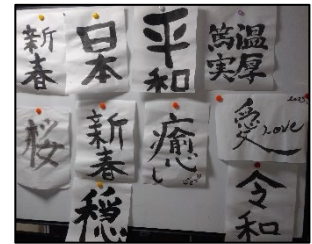 新春
日本
平和
温厚
篤実
桜
新春
癒し
愛 Love
穏
令和